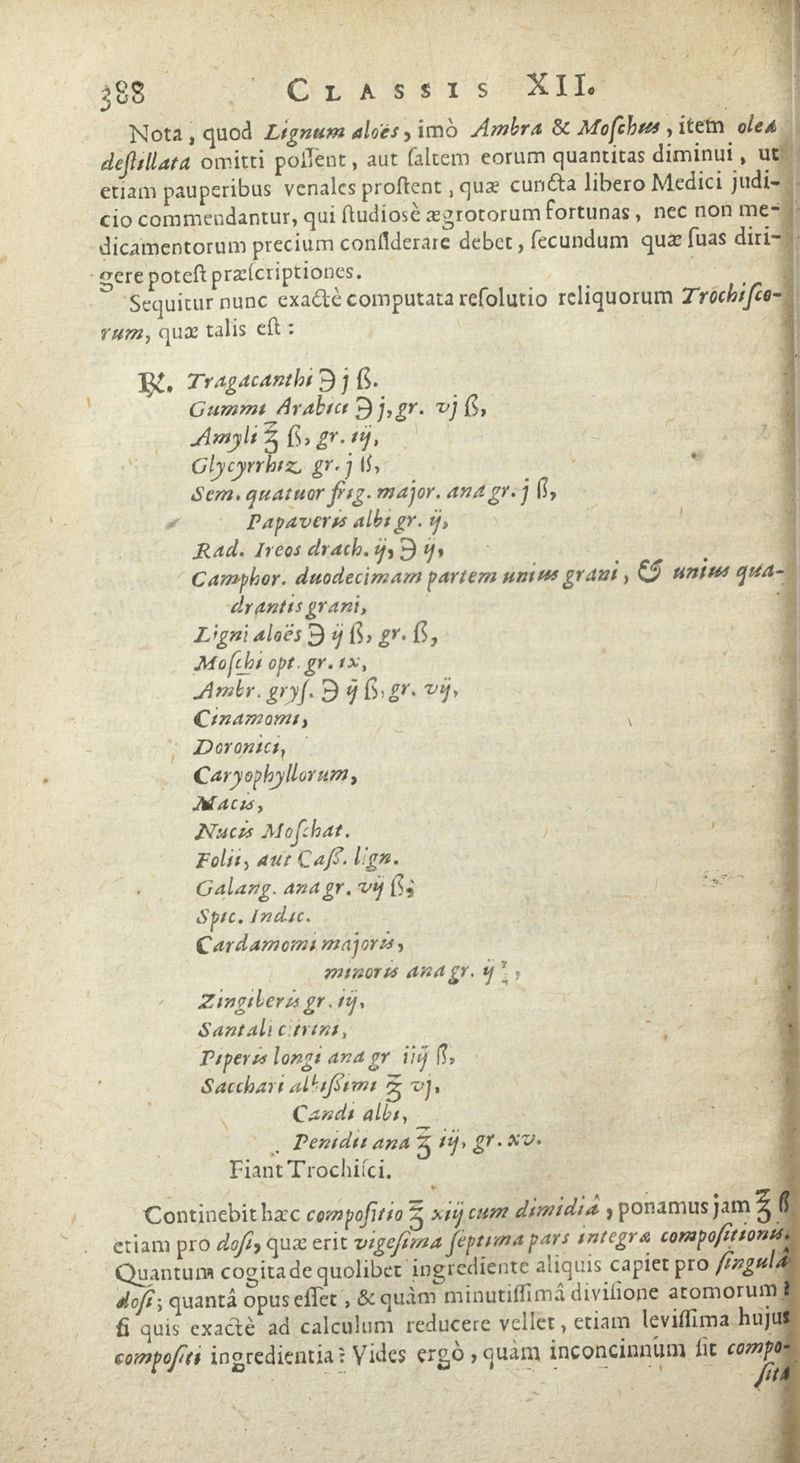 388 CLASSIS XII.
Nota, quod Lignum aloës, imò Ambra & Moſchus, item olea
deſtillata omitti poſſent, aut ſaltem eorum quantitas diminui, ut
etiam pauperibus venales proſtent, quæ cuncta libero Medici judi-
cio commendantur, qui ſtudiosè ægrotorum fortunas, nec non me-
dicamentorum precium conſiderare debet, ſecundum quæ ſuas diri-
gere poteſt præſcriptiones.
Sequitur nunc exactè computata reſolutio reliquorum Trochiſco-
rum, quæ talis eſt:
℞. Tragacanthi ℈ j ß.
Gummi Arabici ℈ j, gr. vj ß,
Amyli ℥ ß, gr. iij,
Glycyrrhiz. gr. j ß,
Sem. quatuor frig. major. ana gr. j ß,
Papaveris albi gr. ij,
Rad. Ireos drach. ij, ℈ ij,
Camphor. duodecimam partem unius grani, & unius qua-
drantis grani,
Ligni aloës ℈ ij ß, gr. ß,
Moſchi opt. gr. ix,
Ambr. gryſ. ℈ ij ß, gr. vij,
Cinamomi,
Doronici,
Caryophyllorum,
Macis,
Nucis Moſchat.
Folii, aut Caſſ. lign.
Galang. ana gr. vij ß;
Spic. Indic.
Cardamomi majoris,
minoris ana gr. ij
Zingiberis gr. iij,
Santali citrini,
Piperis longi ana gr iiij ß,
Sacchari albiſſimi ℥ vj,
Candi albi,
Penidii ana ℥ iij, gr. xv.
Fiant Trochiſci.
Continebit hæc compoſitio ℥ xiij cum dimidiâ, ponamus jam ℥ ß
etiam pro doſi, quæ erit vigeſima ſeptima pars integræ compoſitionis.
Quantum cogita de quolibet ingrediente aliquis capiet pro ſingula
doſi; quantâ opus eſſet, & quàm minutiſſimâ diviſione atomorum?
ſi quis exactè ad calculum reducere vellet, etiam leviſſima hujus
compoſiti ingredientia? Vides ergò, quàm inconcinnum ſit compo-
ſita